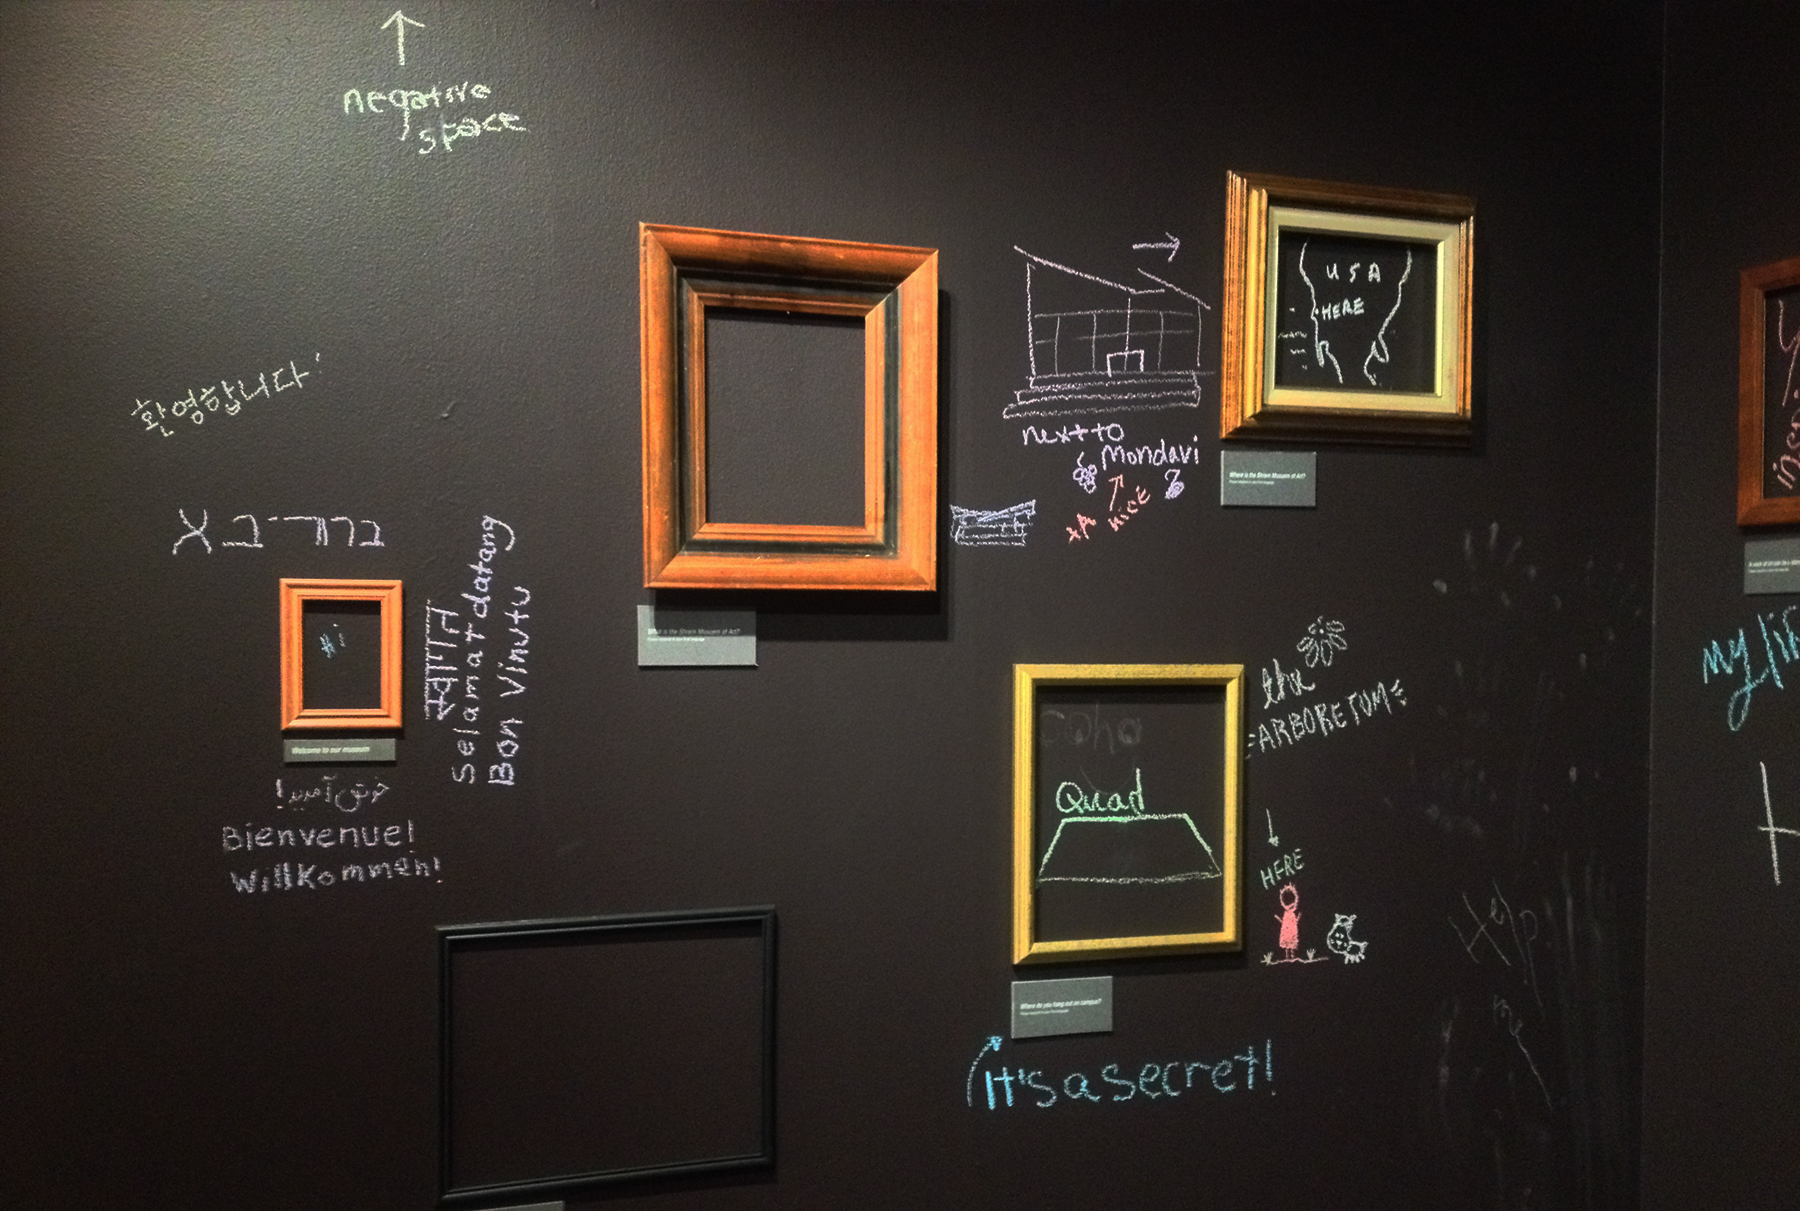 negative
space
환영합니다!
Hi
Welcome to our museum
स्वागत
Selamat datang
Bon Vinutu
خوش آمدید!
Bienvenue!
Willkommen!
What is the Shrem Museum of Art?
next to
Mondavi
nice
USA
HERE
Where is the Shrem Museum of Art?
coho
Quad
the
ARBORETUM
HERE
Where do you hang out on campus?
It's a secret!
Help
me
my